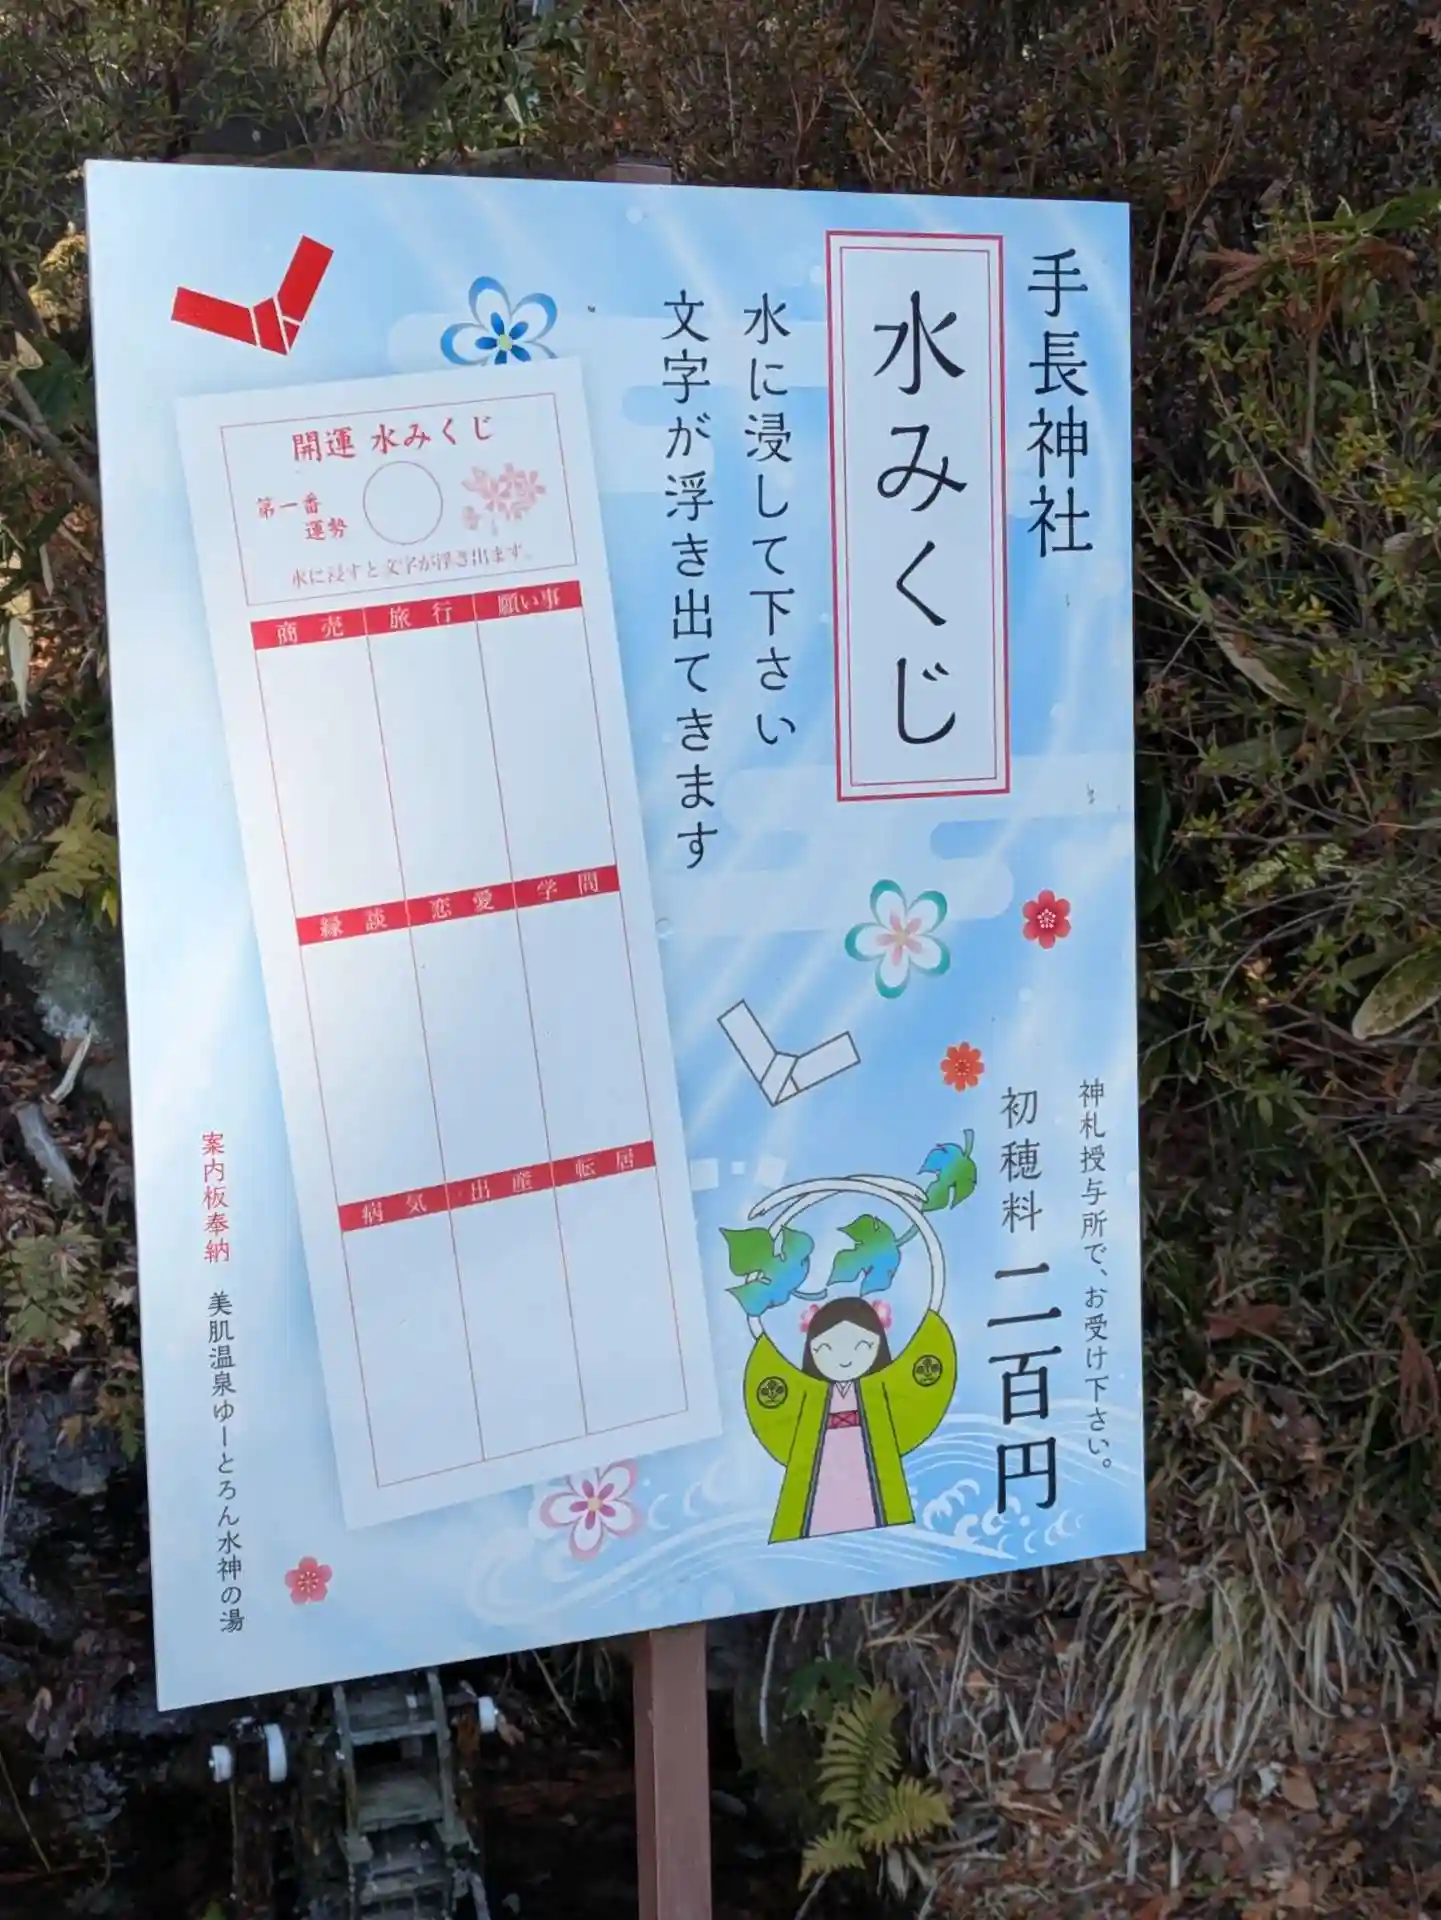 手長神社
水みくじ
水に浸して下さい
文字が浮き出てきます
開運 水みくじ
第一番
運勢
水に浸すと文字が浮き出ます。
商売 旅行 願い事
縁談 恋愛 学問
病気 出産 転居
神札授与所で、お受け下さい。
初穂料 二百円
案内板奉納 美肌温泉ゆーとろん水神の湯